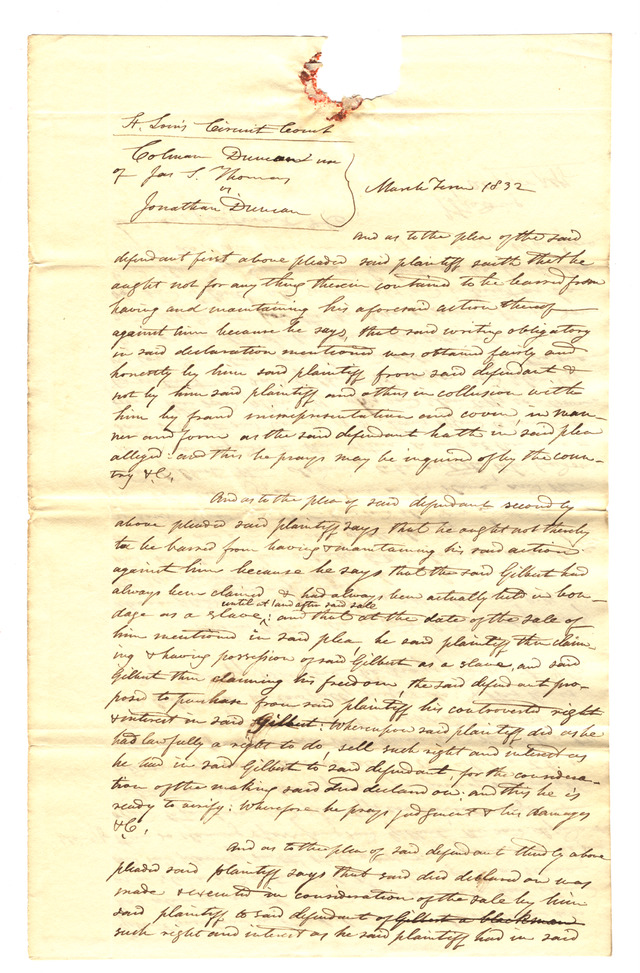 St. Louis Circuit Court
Colman Duncan use
of Jas S. Thomas
vs
Jonathan Duncan
March Term 1832
And as to the plea of the said
defendant first above pleaded said plaintiff saith that he
ought not for any thing therein contained to be barred from
having and maintaining his aforesaid action thereof
against him because he says, that said writing obligatory
in said declaration mentioned was obtained fairly and
honestly by him said plaintiff from said defendant &
not by him said plaintiff and others in collusion with
him by fraud misrepresentation and covin, in man-
ner and form as the said defendant hath in said plea
alleged: and this he prays may be inquired of by the coun-
try &C,
And as to the plea of said defendant secondly
above pleaded said plaintiff says that he ought not thereby
to be barred from having & maintaining his said action
against him because he says that the said Gilbert had
always been claimed & had always been actually held in bon-
until at & and after said sale
dage as a slave; and that at the date of the sale of
him mentioned in said plea, he said plaintiff then claim-
ing & having possession of said Gilbert as a slave, and said
Gilbert then claiming his freedom, the said defendant pro-
posed to purchase from said plaintiff his controverted right
& interest in said Gilbert: Whereupon said plaintiff did as he
had lawfully a right to do, sell such right and interest as
he had in said Gilbert to said defendant, for the considera-
tion of the making said deed declared on: and this he is
ready to verify: Wherefore he prays judgment & his damages
&C,
And as to the plea of said defendant thirdly above
pleaded said plaintiff says that said deed declared on was
made & executed in consideration of the sale by him
said plaintiff to said defendant of Gilbert a blackman
such right and interest as he said plaintiff had in said